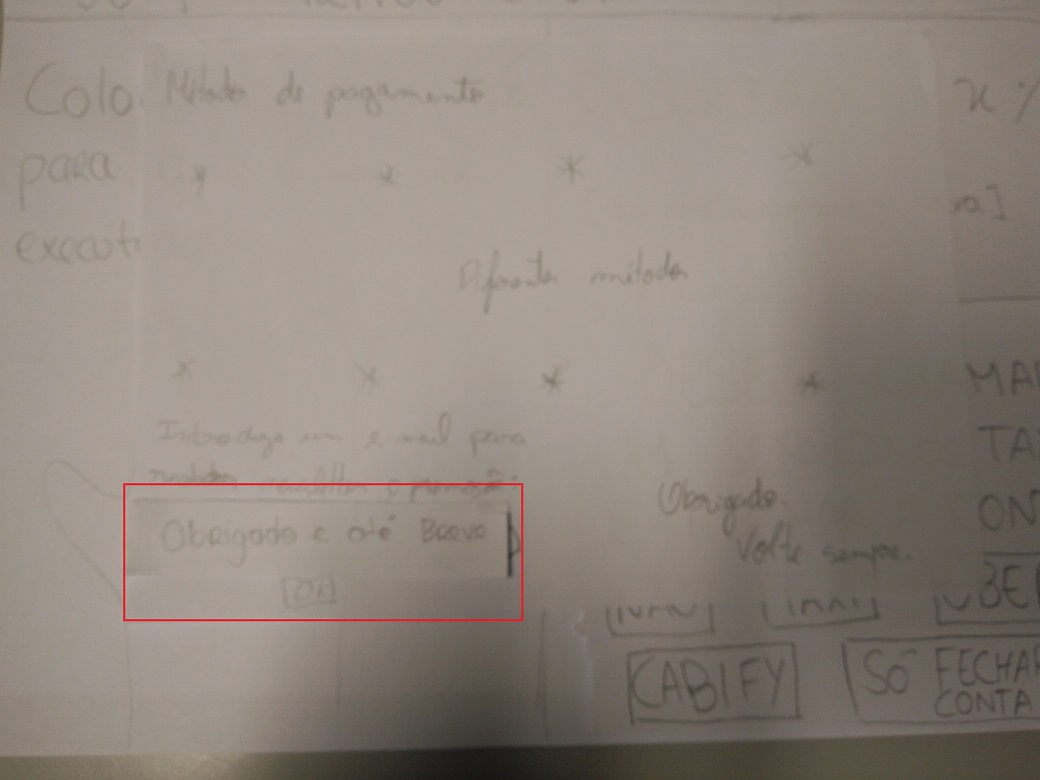 Colo
para
execut
Métodos de pagamento
* * * *
Diferentes métodos
* * * *
Introduza um e-mail para
receber newsletter e
Obrigado e até Breve
OK
Obrigado.
Volte sempre.
x %
xa]
MA
TA
ON
BE
CABIFY
SÓ FECHAR
CONTA